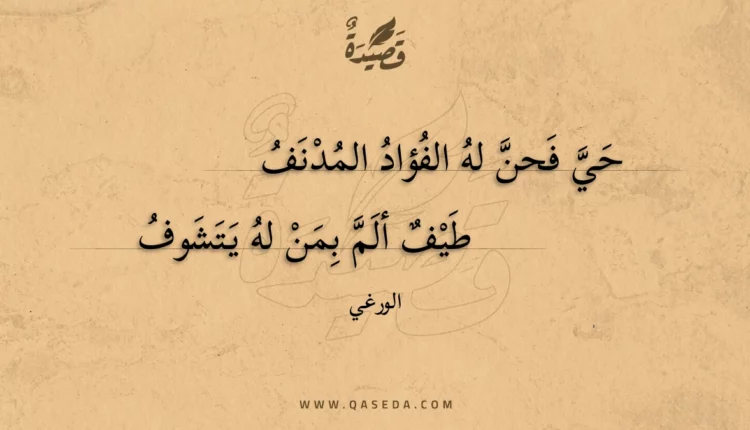 قَصِيْدَةٌ
حَيَّ فَحنَّ لهُ الفُؤادُ المُدْنَفُ
طَيْفٌ ألَمَّ بِمَنْ لهُ يَتَشَوفُ
الورغي
WWW.QASEDA.COM